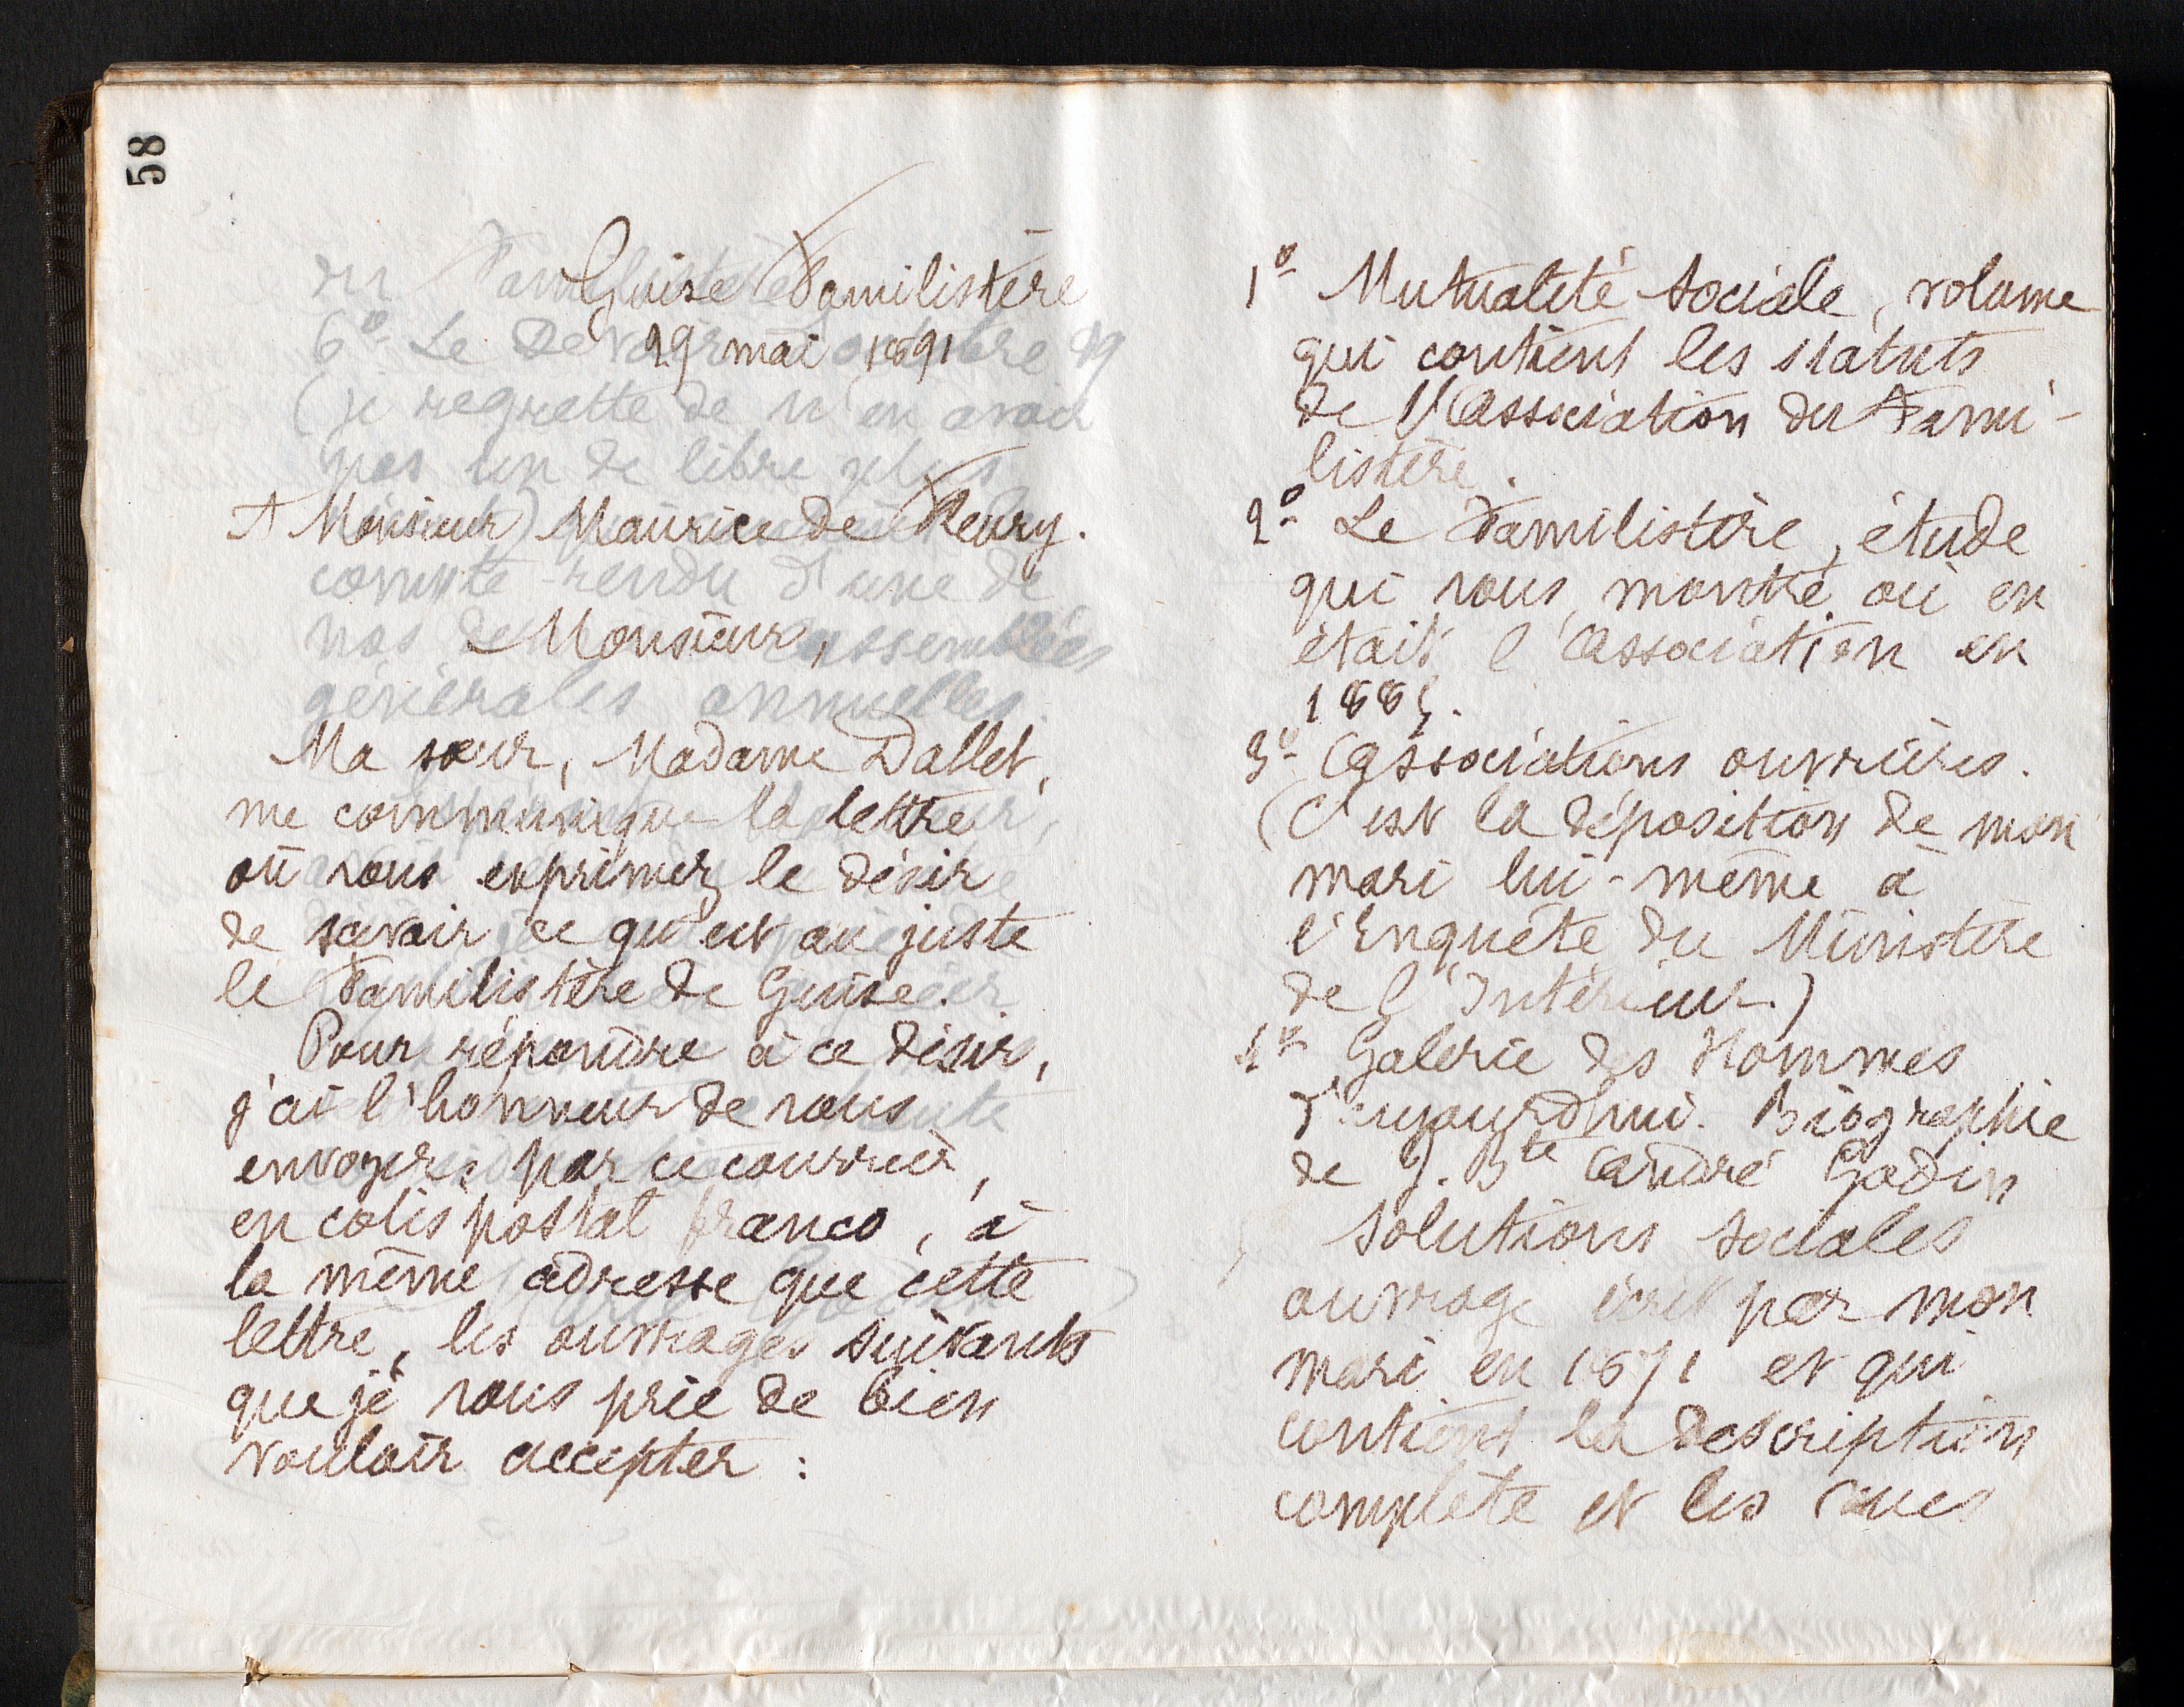 58
Guise Familistère
29 mai 1891
A Monsieur Maurice de Fleury.
Monsieur,
Ma sœur, Madame Dallet,
me communique la lettre
où vous exprimez le désir
de savoir ce qu'est au juste
le Familistère de Guise.
Pour répondre à ce désir,
j'ai l'honneur de vous
envoyer, par ce courrier,
en colis postal franco, à
la même adresse que cette
lettre, les ouvrages suivants
que je vous prie de bien
vouloir accepter :
du Familistère
6º Le Devoir octobre 89
(je regrette de n'en avoir
pas un de libre plus
compte-rendu d'une de
nos assemblées
générales annuelles.
1º Mutualité sociale, volume
qui contient les statuts
de l'Association du Fami-
listère.
2º Le Familistère, étude
qui vous montre où en
était l'Association en
1884.
3º Associations ouvrières.
(C'est la déposition de mon
mari lui-même à
l'Enquête du Ministère
de l'Intérieur.)
4º Galerie des Hommes
d'aujourd'hui. Biographie
de J. Bte André Godin
Solutions sociales
ouvrage écrit par mon
mari en 1871 et qui
contient la description
complète et les vues